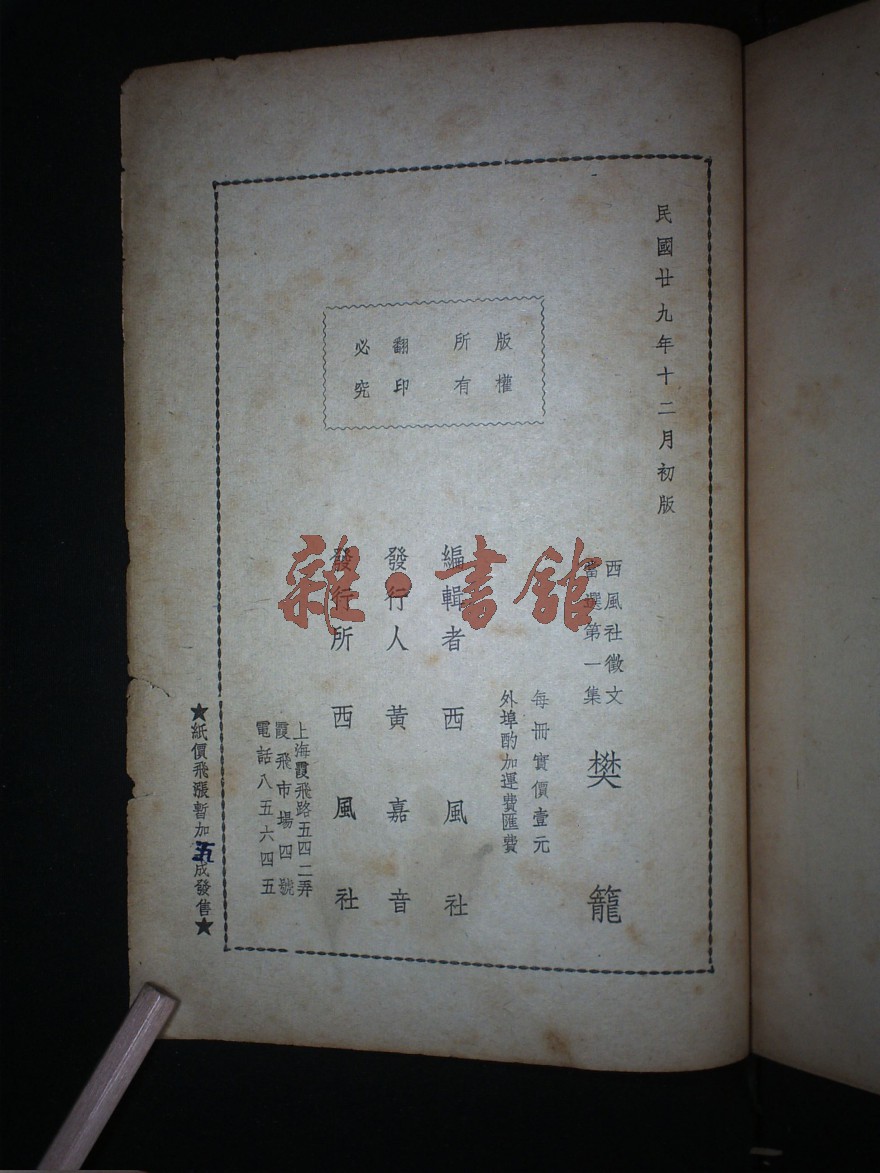 民國廿九年十二月初版
版權
所有
翻印
必究
西風社徵文
當選第一集
樊籠
每冊實價壹元
外埠酌加運費匯費
編輯者 西風社
發行人 黃嘉音
發行所 西風社
上海霞飛路五四二弄
霞飛市場四號
電話八五六四五
★紙價飛漲暫加五成發售★
雜·書館